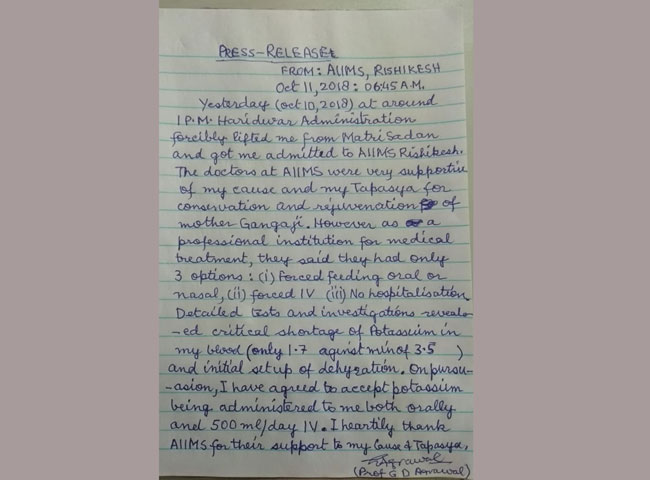 PRESS-RELEASE
FROM: AIIMS, RISHIKESH
Oct 11, 2018: 06:45 A.M.
Yesterday (oct 10, 2018) at around
1 P.M. Haridwar Administration
forcibly lifted me from Matri Sadan
and got me admitted to AIIMS Rishikesh.
The doctors at AIIMS were very supportive
of my cause and my Tapasya for
conservation and rejuvenation of
mother Gangaji. However as a
professional institution for medical
treatment, they said they had only
3 options: (i) Forced feeding oral or
nasal, (ii) forced IV (iii) No hospitalisation
Detailed tests and investigations reveal-
-ed critical shortage of Potassium in
my blood (only 1.7 aginst min of 3.5 )
and initial setup of dehyration. On pursu-
-asion, I have agreed to accept potassium
being administered to me both orally
and 500 ml/day IV. I heartily thank
AIIMS for their support to my Cause & Tapasya.
GDAgrawal
(Prof G D Agrawal)